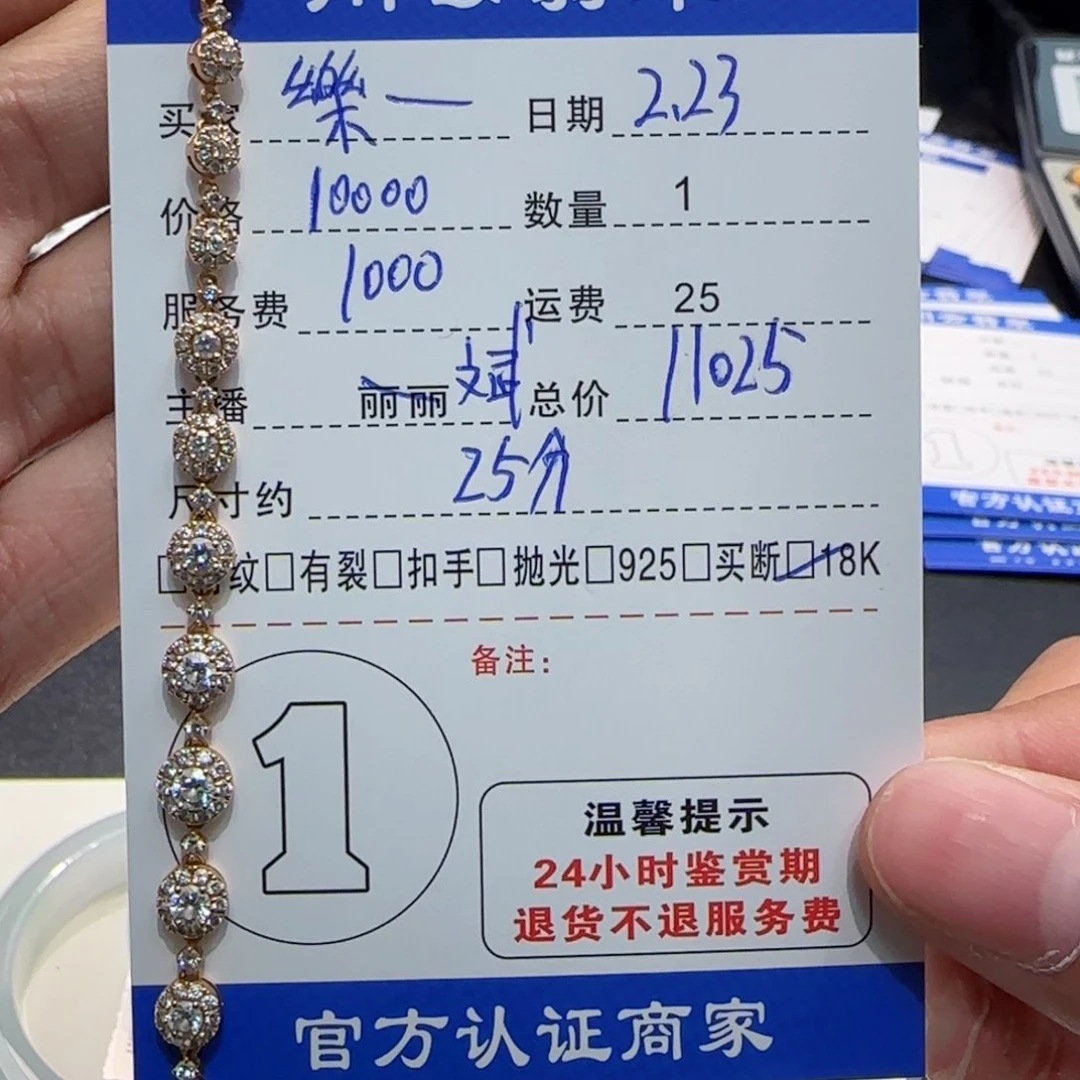 买家 樂一 日期 2.23
价格 10000 数量 1
服务费 1000 运费 25
主播 丽丽 斌 总价 11025
尺寸约 25分
□纹□有裂□扣手□抛光□925□买断□18K
备注：
1
温馨提示
24小时鉴赏期
退货不退服务费
官方认证商家